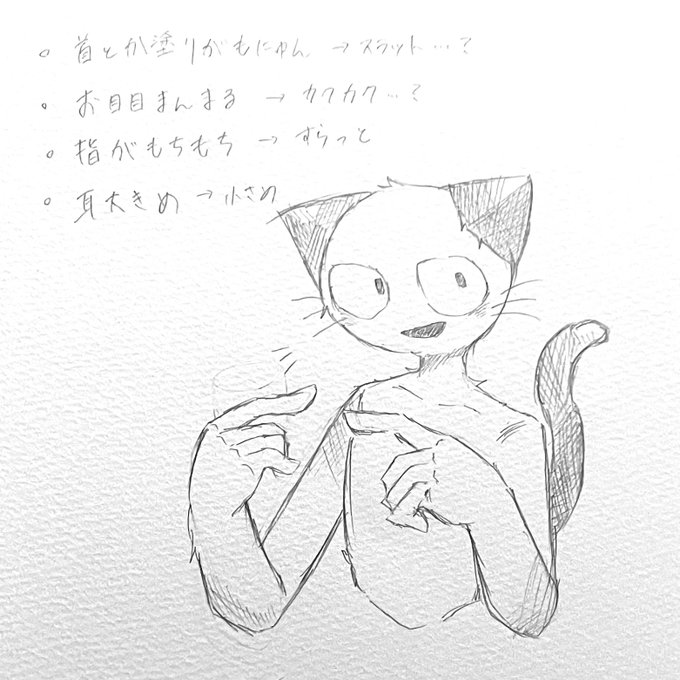 。首とか塗りがもにゅん → スラット…?
。お目目まんまる → カクカク…?
。指がもちもち → すらっと
。耳大きめ → 小さめ